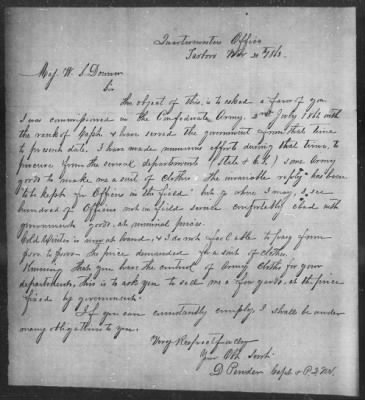 Quartermasters Office
Tarboro Nov 20th 1863.
Maj. W. S. Downer
Sir
The object of this, is to ask a favor of you
I was commissioned in the Confederate Army, 2nd July 1861 with
the rank of Capt. & have served the government from that time
to present date. I have made numerous efforts during that time, to
procure from the several departments (State & C.S.) some Army
goods to make me a suit of clothes. the invariable reply "has been
to be kept for Officers in the field" but go where I may, I see
hundreds of Officers not in field service comfortably clad with
government goods, at nominal prices.
Cold Winter is near at hand, & I do not feel able to pay from
$500 to $1000 the price demanded for a suit of clothes.
Knowing that you have the control of Army Cloths for your
department, this is to ask you to sell me a few goods, at the price
fixed by government.
If you can consistently comply, I shall be under
many obligations to you.
Very Respectfully
Your Obt Servt.
D Pender Capt & A.Q.M.